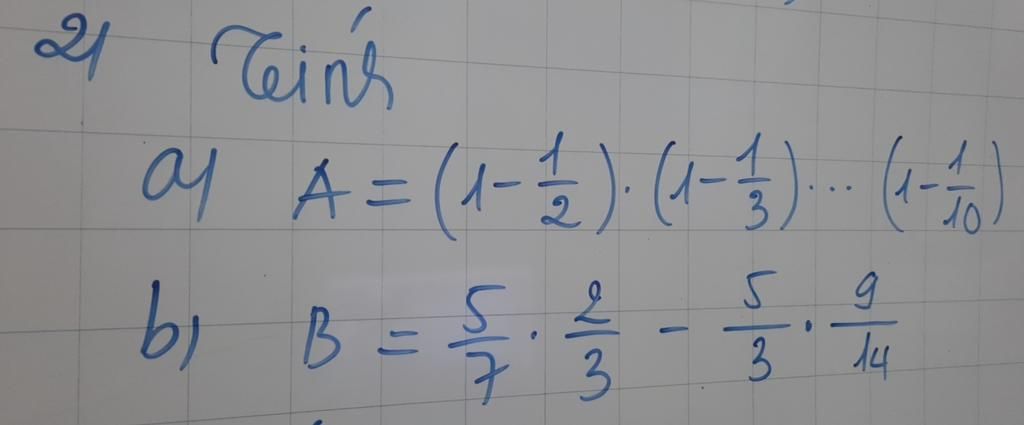 2) Tính
a) A = (1 - 1/2) . (1 - 1/3) ... (1 - 1/10)
b) B = 5/7 . 2/3 - 5/3 . 9/14